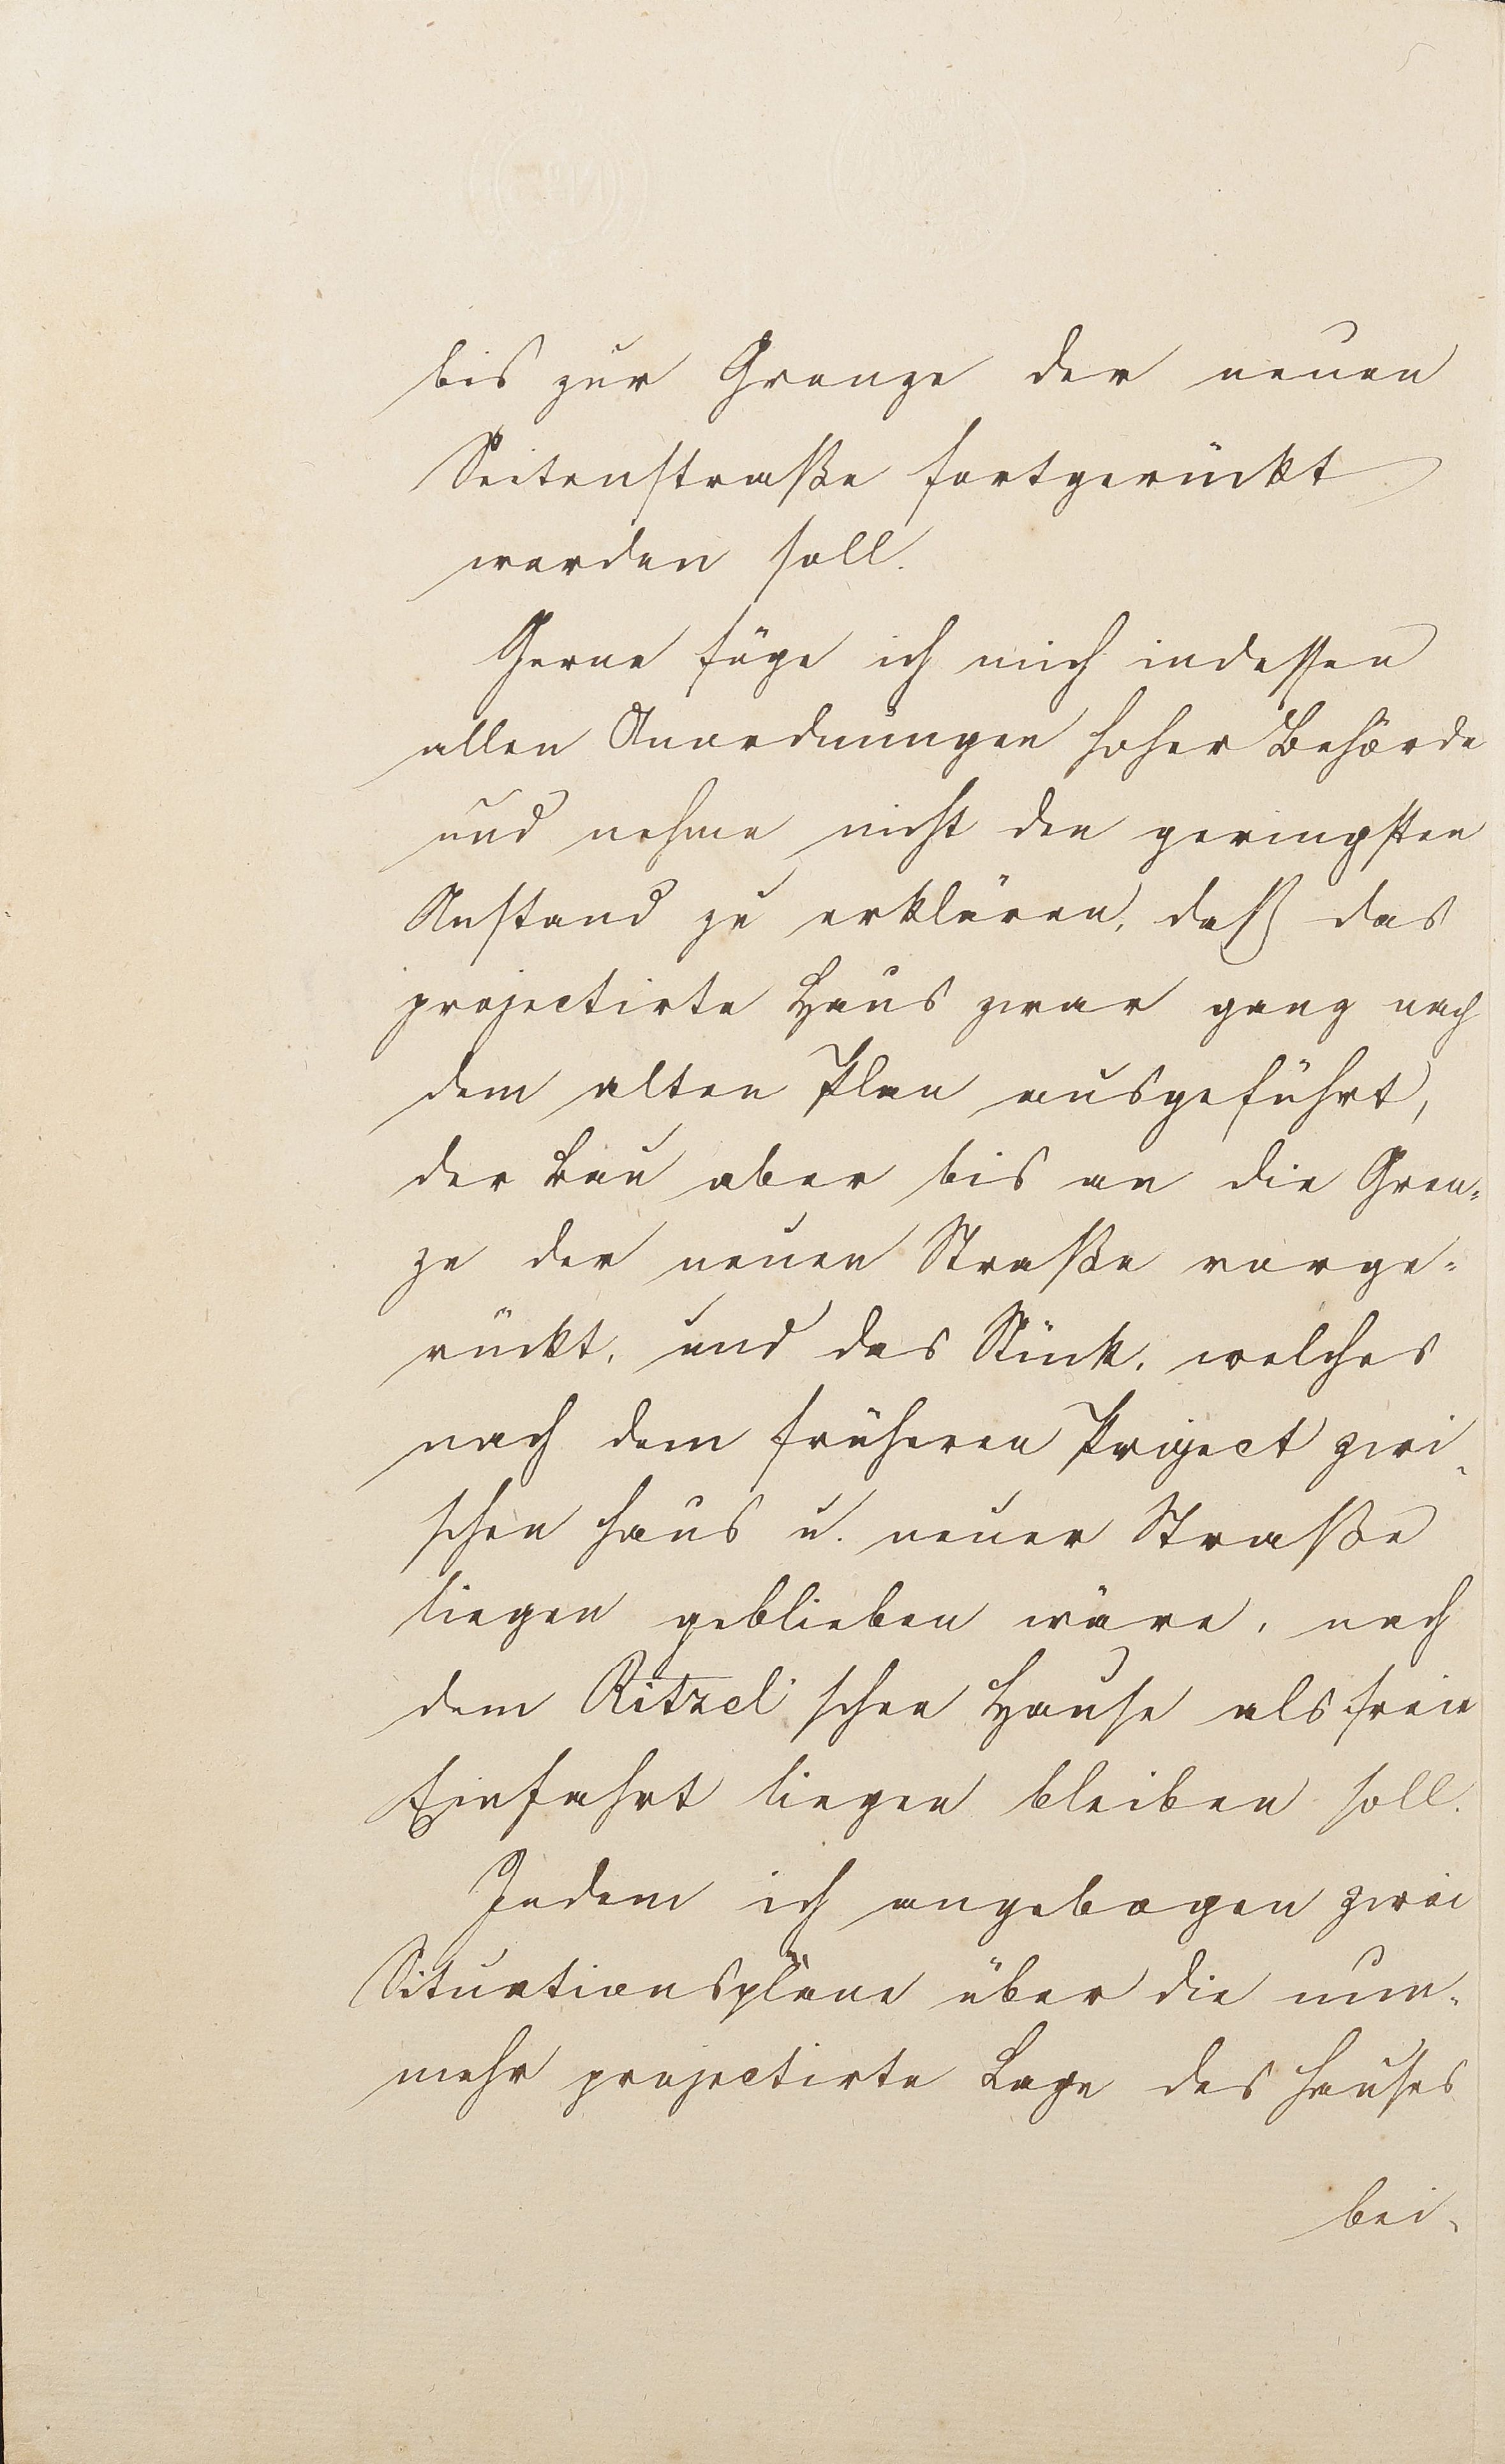 bis zur Grenze der neuen
Seitenstraße fortgerückt
werden soll.
Gerne füge ich mich indessen
allen Anordnungen hoher Behörde
und nehme nicht den geringsten
Anstand zu erklären, daß das
projectirte Haus zwar ganz nach
dem alten Plan ausgeführt,
der Bau aber bis an die Gren-
ze der neuen Straße vorge-
rückt, und das Stück, welches
nach dem früheren Project zwi-
schen Haus u. neuer Straße
liegen geblieben wäre, nach
dem Ritzel'schen Hause als freie
Einfahrt liegen bleiben soll.
Indem ich angebogen zwei
Situationspläne über die nun-
mehr projectirte Lage des Hauses
bei-